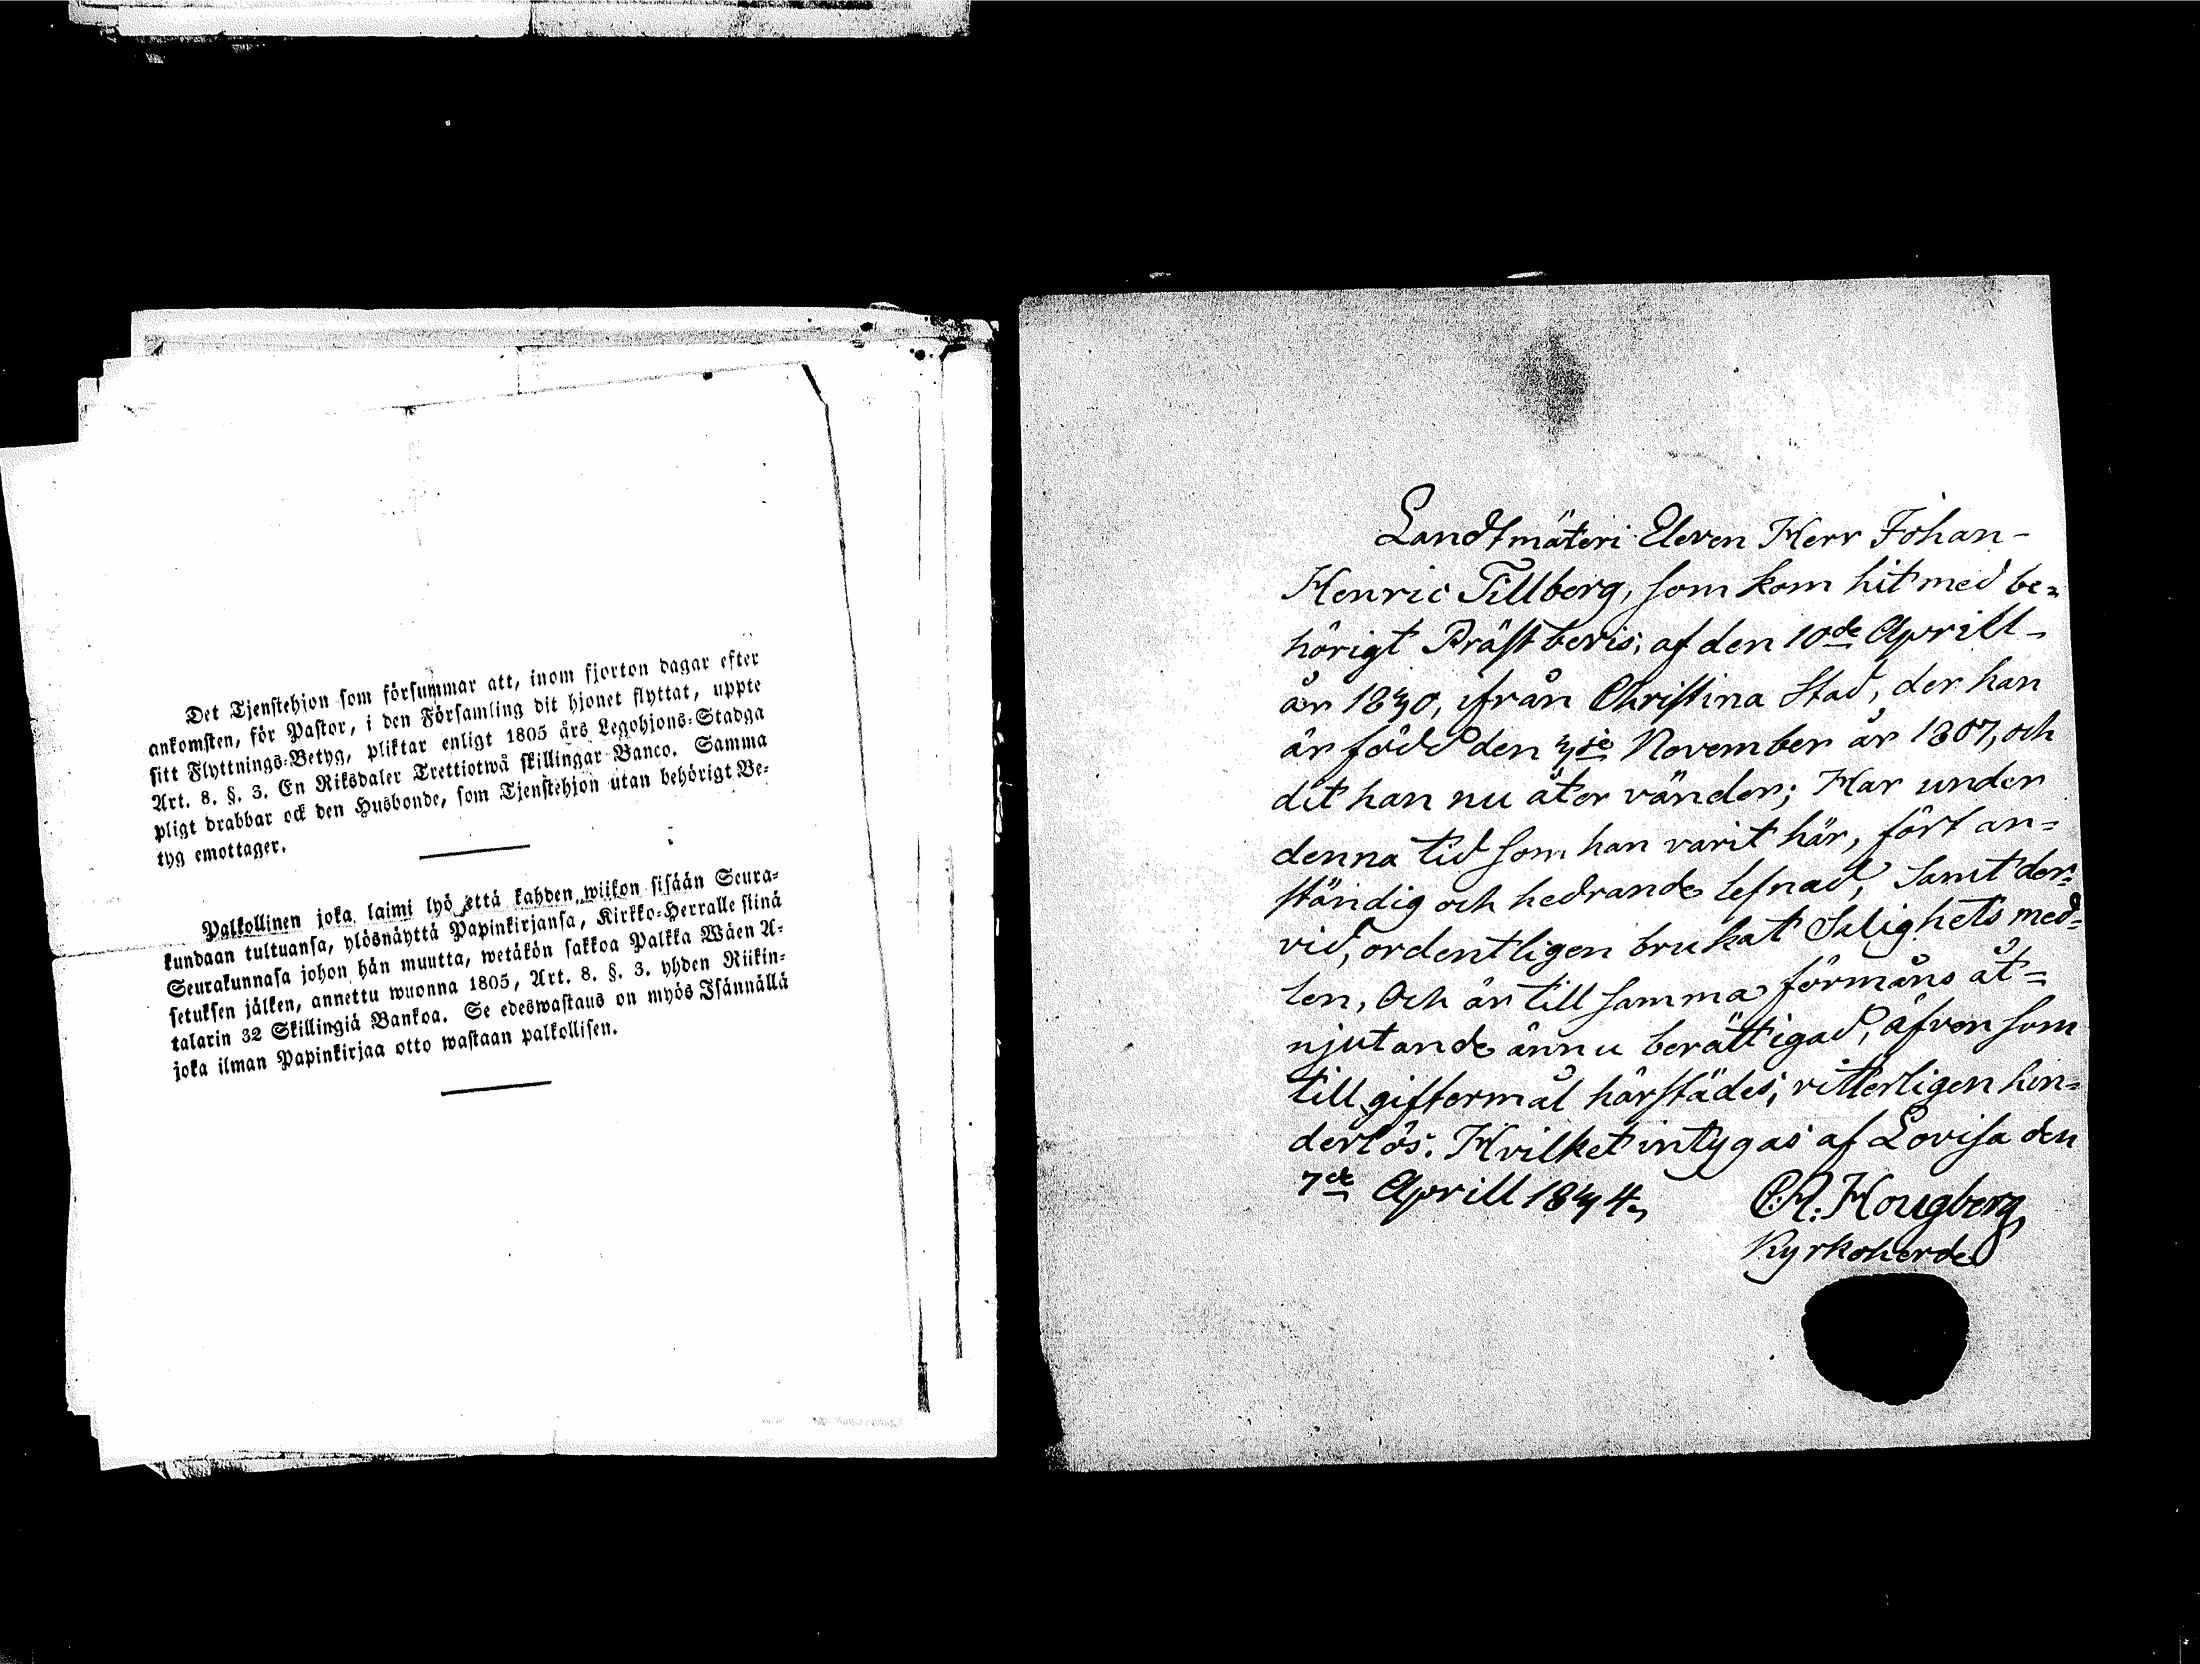 Det Tjenstehjon som försummar att, inom fjorton dagar efter
ankomsten, för Pastor, i den Församling dit hjonet flyttat, uppte
sitt Flyttnings-Betyg, pliktar enligt 1805 års Legohjons-Stadga
Art. 8. §. 3. En Riksdaler Trettiotwå skillingar Banco. Samma
pligt drabbar ock den Husbonde, som Tjenstehjon utan behörigt Be-
tyg emottager.
Palkollinen joka laimi lyö että kahden wiikon sisään Seura-
kundaan tultuansa, ylösnäyttä Papinkirjansa, Kirkko-Herralle siinä
Seurakunnasa johon hän muutta, wetäkön sakkoa Palkka Wäen A-
setuksen jälken, annettu wuonna 1805, Art. 8. §. 3. yhden Riikin-
talarin 32 Skillingiä Bankoa. Se edeswastaus on myös Isännällä
joka ilman Papinkirjaa otto wastaan palkollisen.
Landtmäteri Eleven Herr Johan-
Henric Tillberg, som kom hit med be=
hörigt Prästbevis, af den 10de Aprill-
år 1830, ifrån Christina Stad, der han
är född den 3je November år 1807, och
dit han nu åter vänder; Har under
denna tid som han varit här, fört an=
ständig och hedrande lefnad, Samt der=
vid, ordentligen brukat Salighets med=
len, Och är till samma förmåns åt=
njutande ännu berättigad, äfven som
till giftermål härstädes, vitterligen hin=
derlös. Hvilket intygas af Lovisa den
7de Aprill 1834.
Hougberg
Kyrkoherde